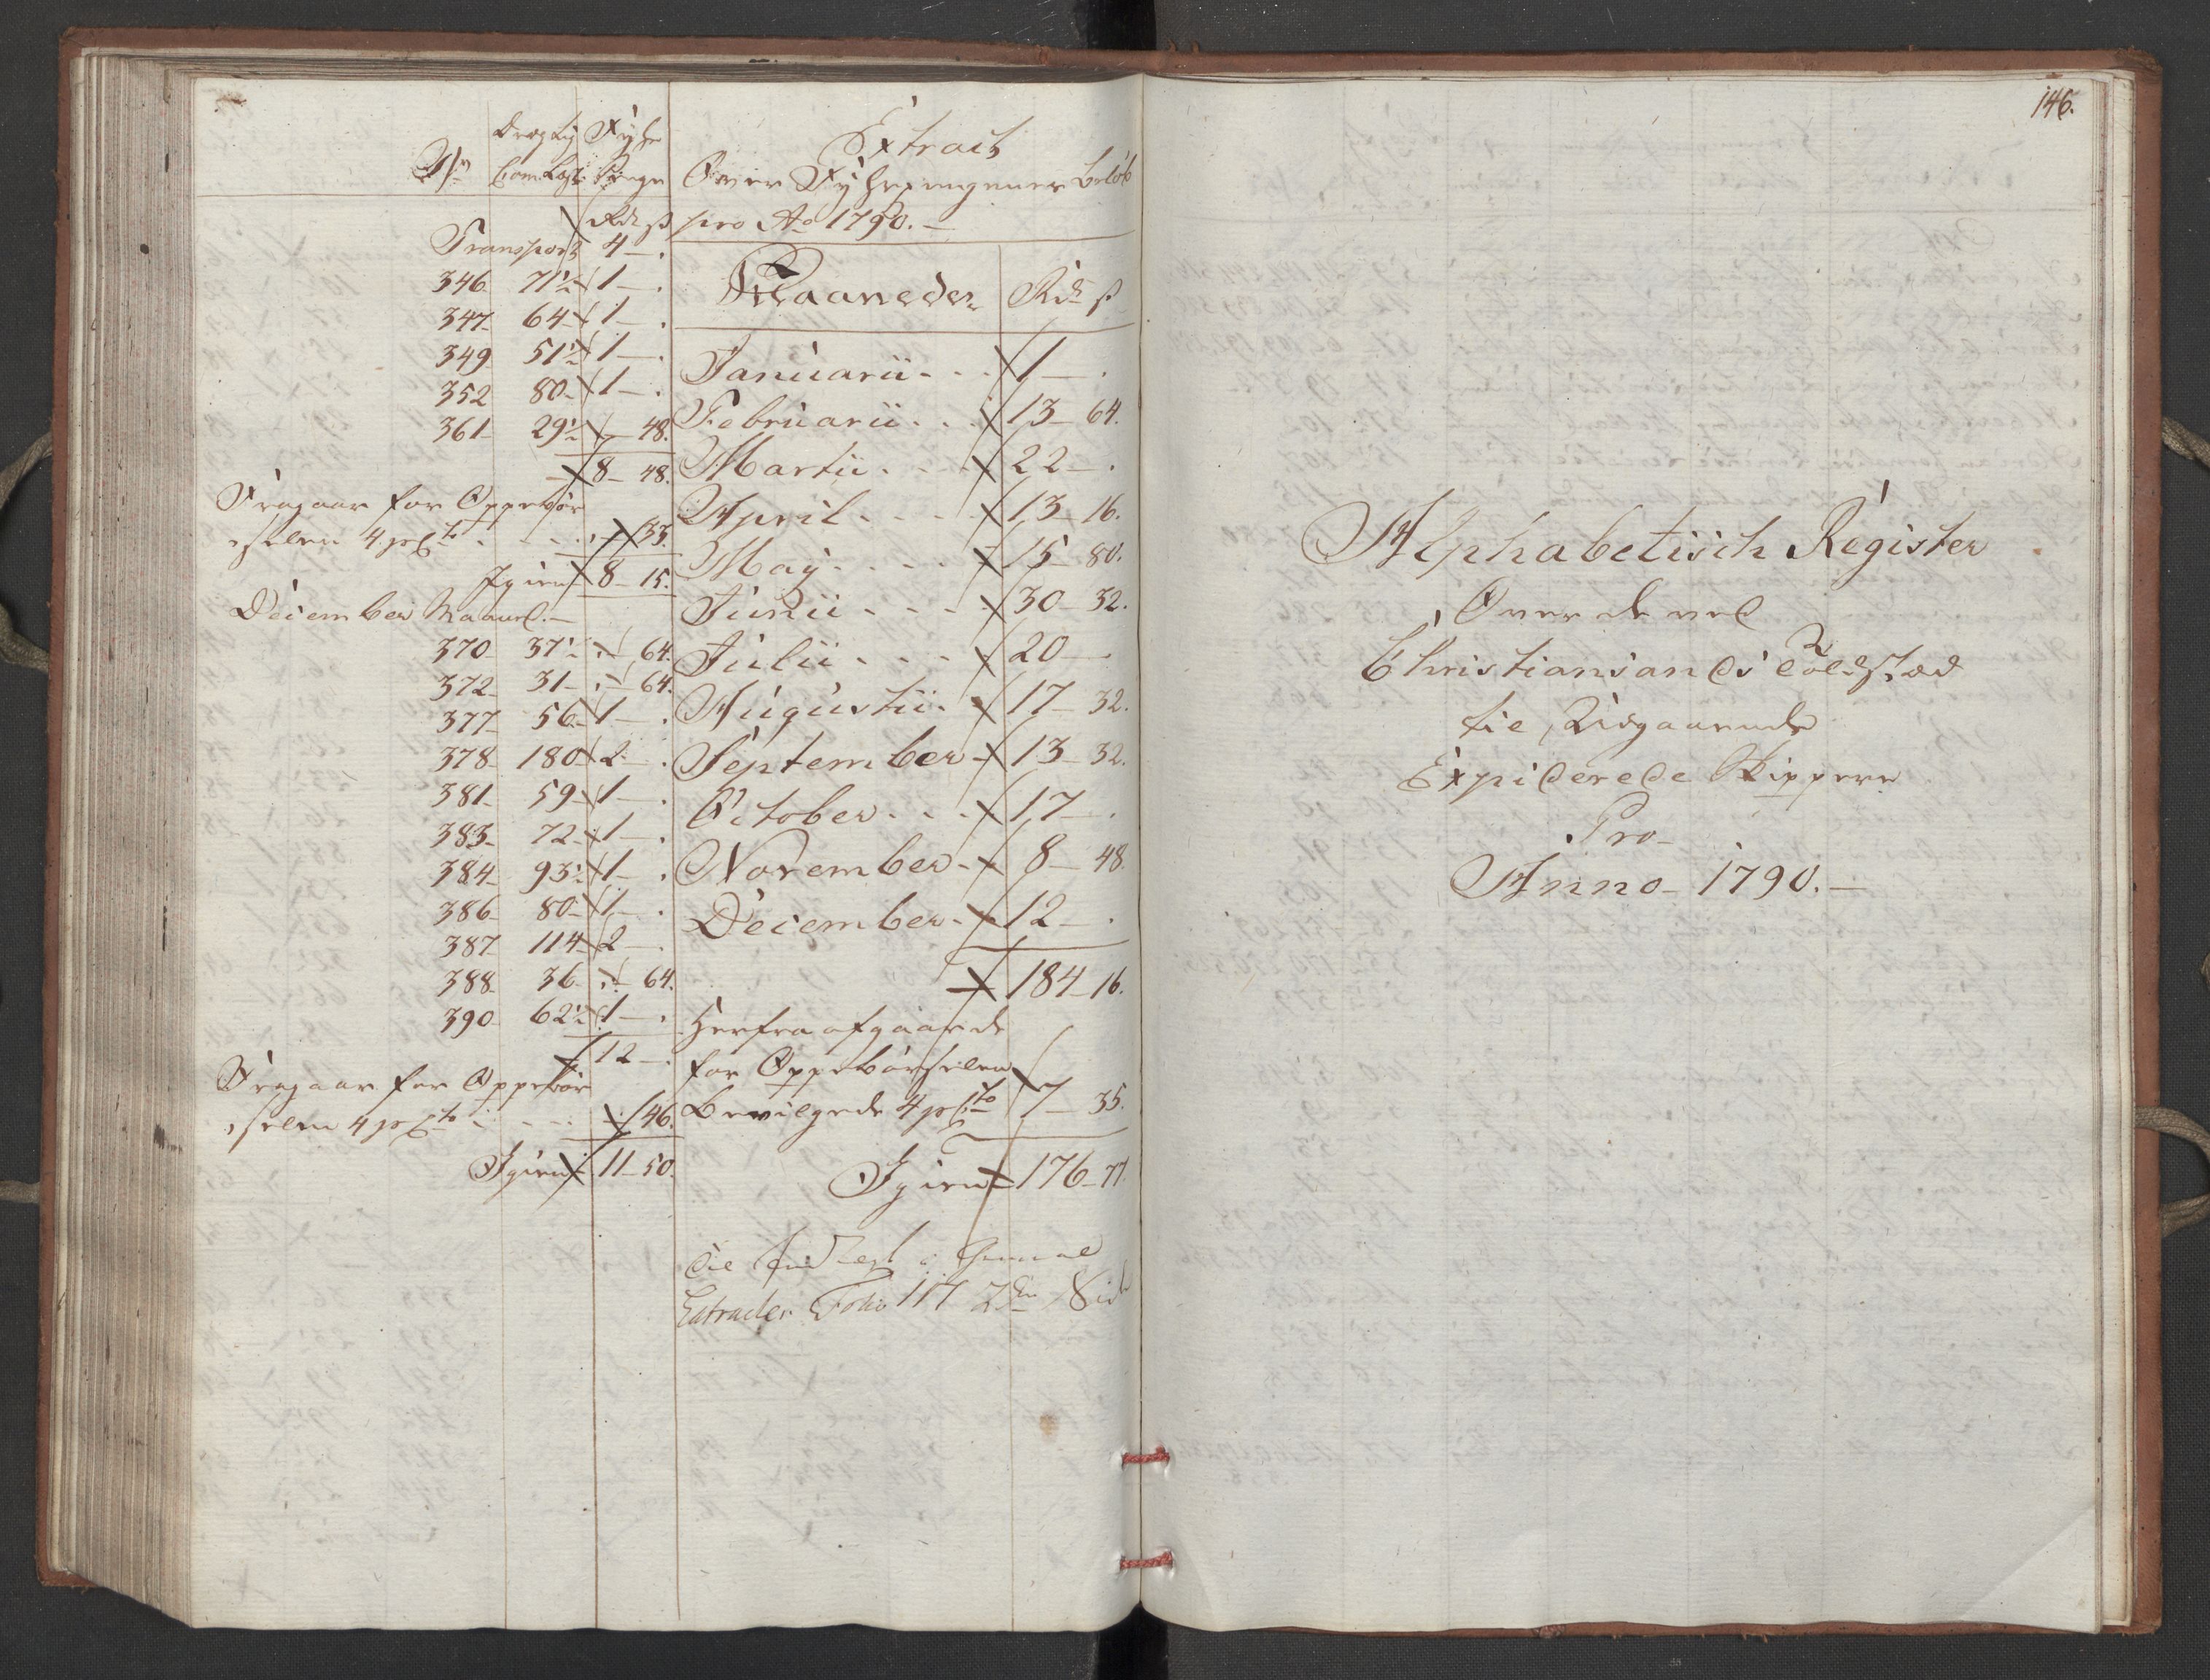 No Drægtig Fyhr
Com: Læst: Penge
Rdr ß
Transport 4 — .
346 71½ 1 — .
347 64 1 — .
349 51½ 1 — .
352 80 1 — .
361 29½ — 48.
8 — 48.
Fragaar for Oppebør
selen 4 prCto . . . 33.
Igien 8 — 15.
December Maaned. —
370 37½ . — 64.
372 31 . — 64.
377 56 1 — .
378 180 2 — .
381 59 1 — .
383 72 1 — .
384 93½ 1 — .
386 80 1 — .
387 114 2 — .
388 36 . — 64.
390 62½ 1 — .
12 — .
Fragaar for Oppebør
selen 4 prCto . . . 46.
Igien 11 — 50.
Extract
Over Fyhrpengenes Beløb
pro Ao 1790. —
Maaneder Rdr ß
Januarii . . . 1 — .
Februarii . . . 13 — 64.
Martii . . . 22 — .
April . . . . 13 — 16.
May . . . . 15 — 80.
Junii . . . . 30 — 32.
Julii . . . . 20 — .
Augustii . 17 — 32.
September 13 — 32.
October . . . 17 — .
November 8 — 48
December 12 — .
184 — 16.
Herfra afgaaende
for Oppebørselen
bevilgede 4 prCto 7 — 35.
Igien 176 — 77.
Extracten Folio 117 2den Side
146.
Alphabetisch Register
Over de ved
Christiansands Toldsted
til Udgaaende
Expiderede Skippere
Pro
Anno 1790. —